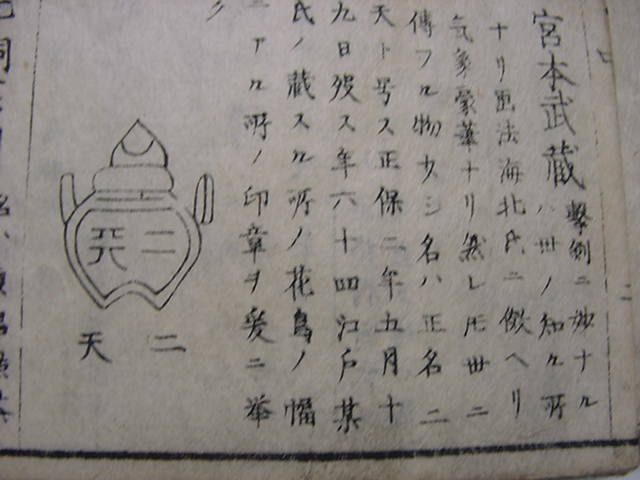 宮本武蔵
擊劔ニ妙ナル
ハ丗ノ知ル所
ナリ画法海北氏ニ倣ヘリ
気象豪華ナリ然レ𪜈丗ニ
傳フル物少シ名ハ正名二
天ト号ス正保二年五月十
九日歿ス年六十四江戸某
氏ノ蔵スル所ノ花鳥ノ幅
ニアル所ノ印章ヲ爰ニ挙
ク
二天
二天